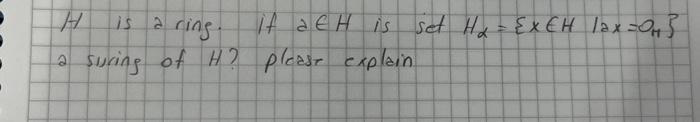 H is a ring. if a ∈ H is set Hα = {x ∈ H | ax = 0H}
a suring of H? please explain